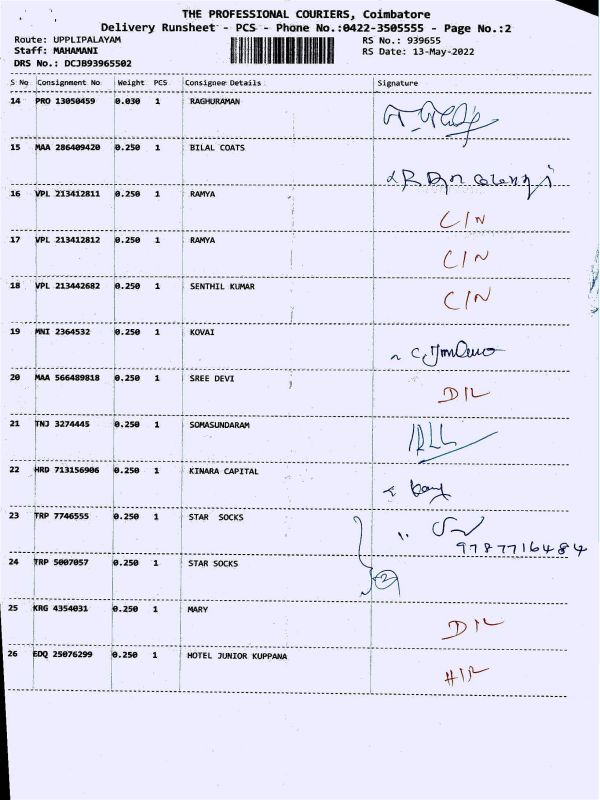 THE PROFESSIONAL COURIERS, Coimbatore
Delivery Runsheet - PCS - Phone No.:0422-3505555 - Page No.:2
Route: UPPLIPALAYAM
Staff: MAHAMANI
DRS No.: DCJB93965502
RS No.: 939655
RS Date: 13-May-2022
S No Consignment No Weight PCS Consignee Details Signature
14 PRO 13050459 0.030 1 RAGHURAMAN
15 MAA 286409420 0.250 1 BILAL COATS
16 VPL 213412811 0.250 1 RAMYA C/N
17 VPL 213412812 0.250 1 RAMYA C/N
18 VPL 213442682 0.250 1 SENTHIL KUMAR C/N
19 MNI 2364532 0.250 1 KOVAI
20 MAA 566489818 0.250 1 SREE DEVI D/L
21 TNJ 3274445 0.250 1 SOMASUNDARAM
22 HRD 713156906 0.250 1 KINARA CAPITAL
23 TRP 7746555 0.250 1 STAR SOCKS 9787716484
24 TRP 5007057 0.250 1 STAR SOCKS 2
25 KRG 4354031 0.250 1 MARY D/L
26 EDQ 25076299 0.250 1 HOTEL JUNIOR KUPPANA